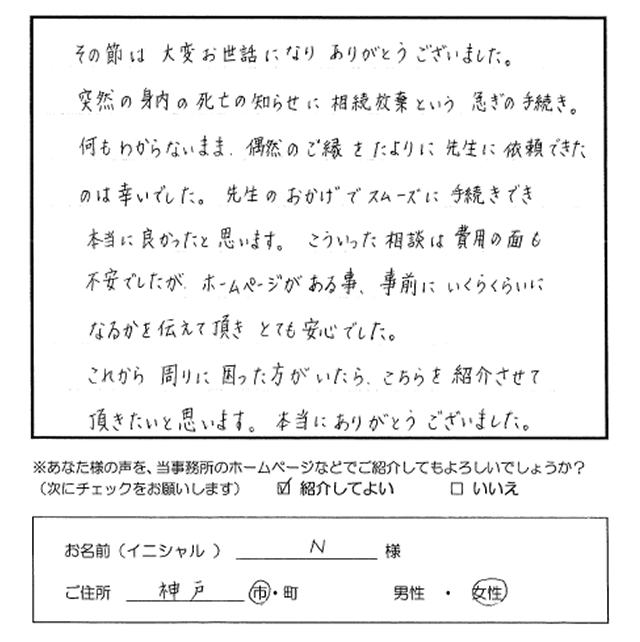 その節は 大変お世話になり ありがとうございました。
突然の身内の死亡の知らせに 相続放棄という 急ぎの手続き。
何もわからないまま、偶然のご縁をたよりに 先生に 依頼できた
のは幸いでした。 先生のおかげでスムーズに 手続きでき
本当に良かったと思います。 こういった相談は費用の面も
不安でしたが、ホームページがある事、事前にいくらくらいに
なるかを伝えて頂き とても安心でした。
これから 周りに困った方がいたら、こちらを紹介させて
頂きたいと思います。 本当にありがとうございました。
※あなた様の声を、当事務所のホームページなどでご紹介してもよろしいでしょうか？
（次にチェックをお願いします） ☑ 紹介してよい □ いいえ
お名前（イニシャル ） N 様
ご住所 神戸 市・町 男性 ・ 女性